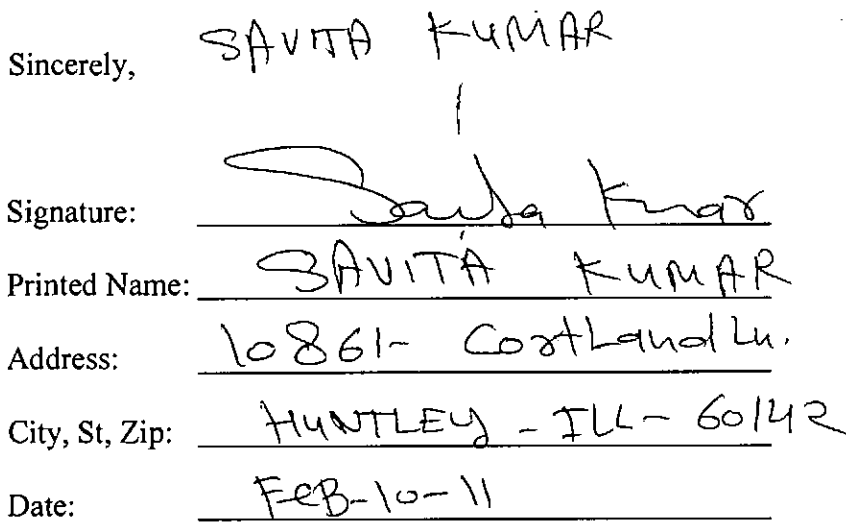 Sincerely, SAVITA KUMAR
Signature: Savita Kumar
Printed Name: SAVITA KUMAR
Address: 10861- Cortland Ln.
City, St, Zip: HUNTLEY - ILL - 60142
Date: FeB-10-11